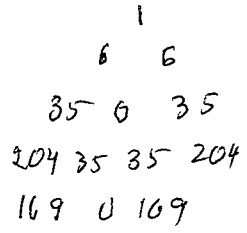 1
6 6
35 0 35
204 35 35 204
169 0 169